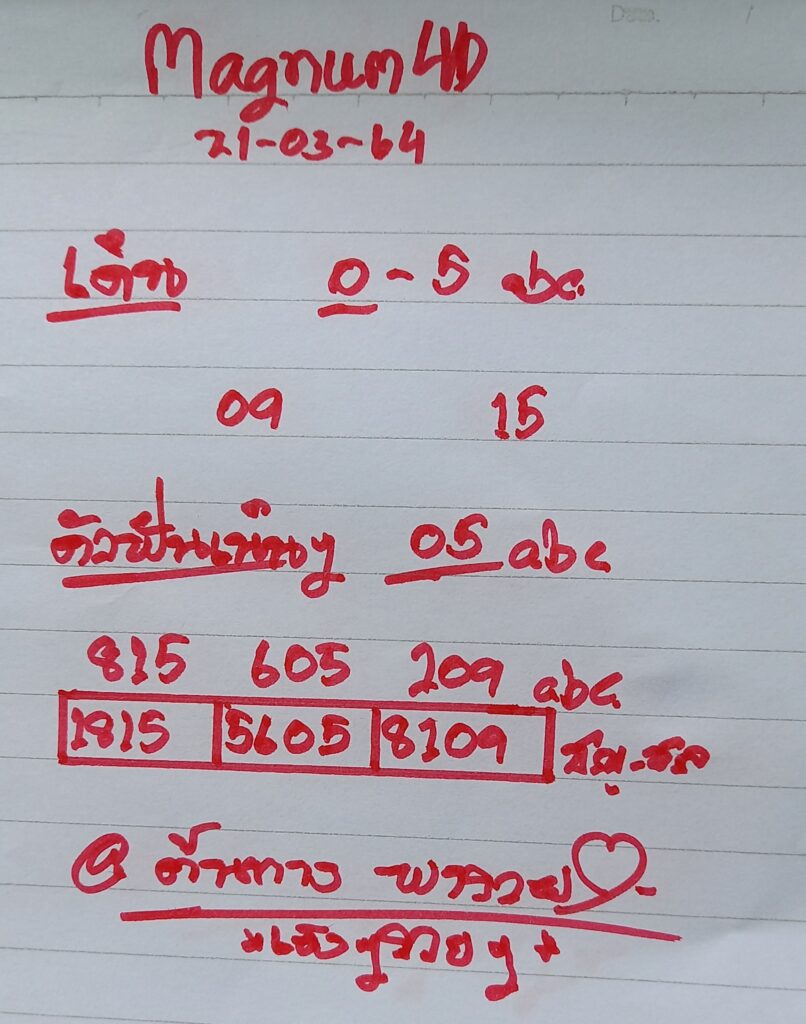 Date. /
Magnum 4D
21-03-64
เด่น 0 - 5 abc
09 15
ตัวฟันเน้นๆ 05 abc
815 605 209 abc
1815 5605 8109
@ ต้นทาง พารวย ♡
*เฮงๆรวยๆ*